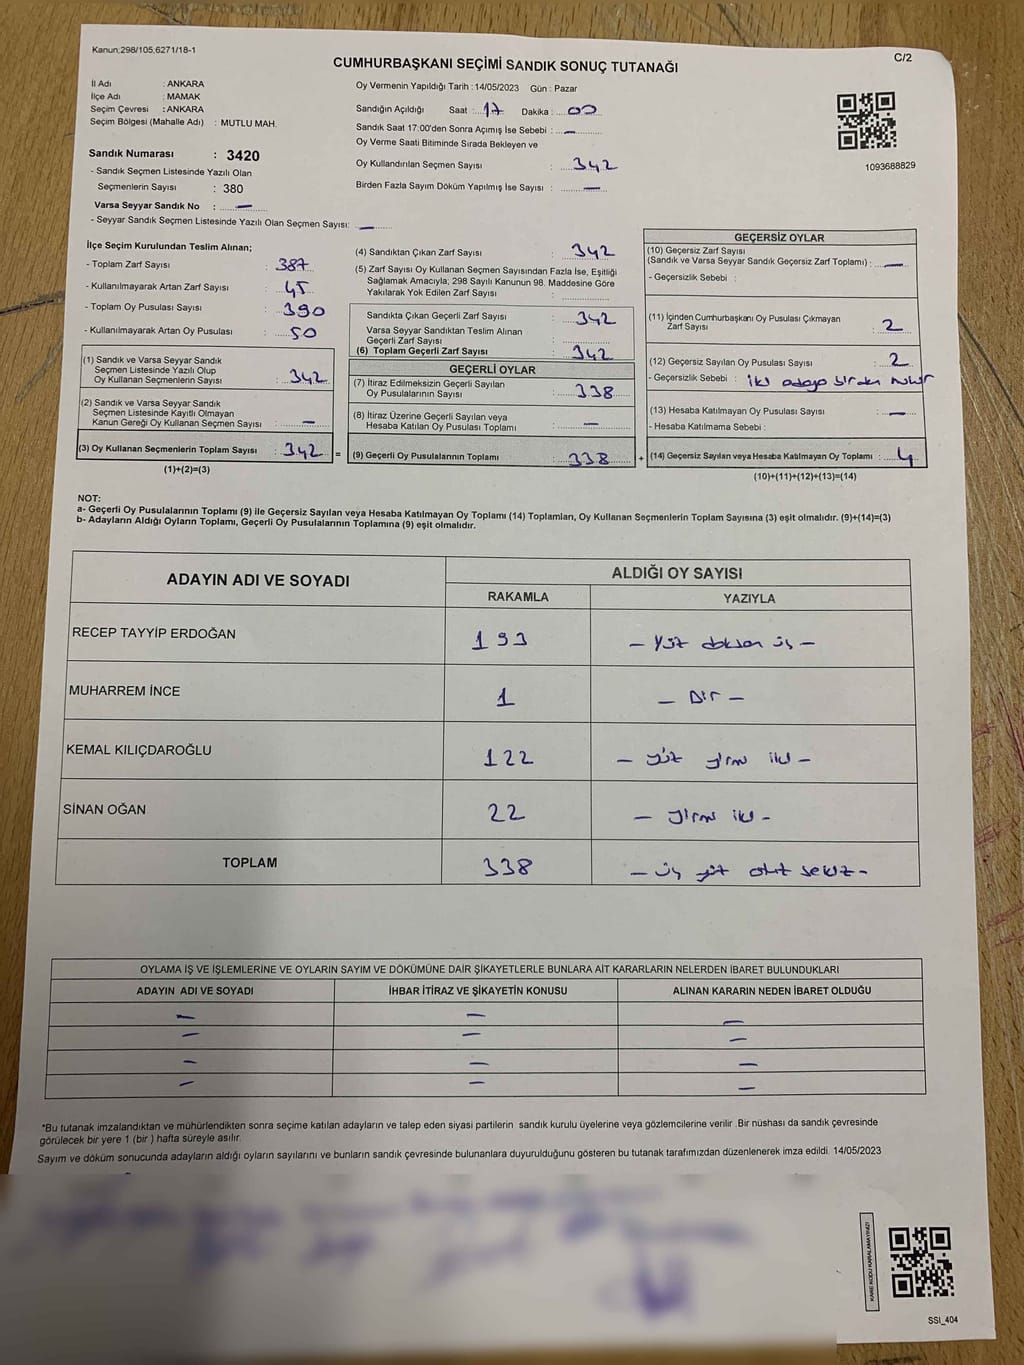 Kanun;298/105,6271/18-1
C/2
CUMHURBAŞKANI SEÇİMİ SANDIK SONUÇ TUTANAĞI
İl Adı : ANKARA
İlçe Adı : MAMAK
Seçim Çevresi : ANKARA
Seçim Bölgesi (Mahalle Adı) : MUTLU MAH.
Sandık Numarası : 3420
- Sandık Seçmen Listesinde Yazılı Olan
Seçmenlerin Sayısı : 380
Varsa Seyyar Sandık No : —
- Seyyar Sandık Seçmen Listesinde Yazılı Olan Seçmen Sayısı: —
Oy Vermenin Yapıldığı Tarih : 14/05/2023 Gün : Pazar
Sandığın Açıldığı Saat : 17 Dakika : 00
Sandık Saat 17:00'den Sonra Açımış İse Sebebi : —
Oy Verme Saati Bitiminde Sırada Bekleyen ve
Oy Kullandırılan Seçmen Sayısı : 342
Birden Fazla Sayım Döküm Yapılmış İse Sayısı : —
1093688829
İlçe Seçim Kurulundan Teslim Alınan;
- Toplam Zarf Sayısı : 387
- Kullanılmayarak Artan Zarf Sayısı : 45
- Toplam Oy Pusulası Sayısı : 390
- Kullanılmayarak Artan Oy Pusulası : 50
(1) Sandık ve Varsa Seyyar Sandık
Seçmen Listesinde Yazılı Olup
Oy Kullanan Seçmenlerin Sayısı : 342
(2) Sandık ve Varsa Seyyar Sandık
Seçmen Listesinde Kayıtlı Olmayan
Kanun Gereği Oy Kullanan Seçmen Sayısı : —
(3) Oy Kullanan Seçmenlerin Toplam Sayısı : 342
(1)+(2)=(3)
=
(4) Sandıktan Çıkan Zarf Sayısı : 342
(5) Zarf Sayısı Oy Kullanan Seçmen Sayısından Fazla İse, Eşitliği
Sağlamak Amacıyla; 298 Sayılı Kanunun 98. Maddesine Göre
Yakılarak Yok Edilen Zarf Sayısı :
Sandıkta Çıkan Geçerli Zarf Sayısı : 342
Varsa Seyyar Sandıktan Teslim Alınan
Geçerli Zarf Sayısı :
(6) Toplam Geçerli Zarf Sayısı : 342
GEÇERLİ OYLAR
(7) İtiraz Edilmeksizin Geçerli Sayılan
Oy Pusulalarının Sayısı : 338
(8) İtiraz Üzerine Geçerli Sayılan veya
Hesaba Katılan Oy Pusulası Toplamı : —
(9) Geçerli Oy Pusulalarının Toplamı : 338
+
GEÇERSİZ OYLAR
(10) Geçersiz Zarf Sayısı
(Sandık ve Varsa Seyyar Sandık Geçersiz Zarf Toplamı) : —
- Geçersizlik Sebebi :
(11) İçinden Cumhurbaşkanı Oy Pusulası Çıkmayan
Zarf Sayısı : 2
(12) Geçersiz Sayılan Oy Pusulası Sayısı : 2
- Geçersizlik Sebebi : iki adaya birden mühür
(13) Hesaba Katılmayan Oy Pusulası Sayısı : —
- Hesaba Katılmama Sebebi :
(14) Geçersiz Sayılan veya Hesaba Katılmayan Oy Toplamı : 4
(10)+(11)+(12)+(13)=(14)
NOT:
a- Geçerli Oy Pusulalarının Toplamı (9) ile Geçersiz Sayılan veya Hesaba Katılmayan Oy Toplamı (14) Toplamları, Oy Kullanan Seçmenlerin Toplam Sayısına (3) eşit olmalıdır. (9)+(14)=(3)
b- Adayların Aldığı Oyların Toplamı, Geçerli Oy Pusulalarının Toplamına (9) eşit olmalıdır.
ADAYIN ADI VE SOYADI
ALDIĞI OY SAYISI
RAKAMLA YAZIYLA
RECEP TAYYİP ERDOĞAN 193 – Yüz doksan üç –
MUHARREM İNCE 1 – Bir –
KEMAL KILIÇDAROĞLU 122 – yüz yirmi iki –
SİNAN OĞAN 22 – yirmi iki –
TOPLAM 338 – üç yüz otuz sekiz –
OYLAMA İŞ VE İŞLEMLERİNE VE OYLARIN SAYIM VE DÖKÜMÜNE DAİR ŞİKAYETLERLE BUNLARA AİT KARARLARIN NELERDEN İBARET BULUNDUKLARI
ADAYIN ADI VE SOYADI İHBAR İTİRAZ VE ŞİKAYETİN KONUSU ALINAN KARARIN NEDEN İBARET OLDUĞU
— — —
— — —
— — —
— — —
*Bu tutanak imzalandıktan ve mühürlendikten sonra seçime katılan adayların ve talep eden siyasi partilerin sandık kurulu üyelerine veya gözlemcilerine verilir .Bir nüshası da sandık çevresinde
görülecek bir yere 1 (bir ) hafta süreyle asılır.
Sayım ve döküm sonucunda adayların aldığı oyların sayılarını ve bunların sandık çevresinde bulunanlara duyurulduğunu gösteren bu tutanak tarafımızdan düzenlenerek imza edildi. 14/05/2023
KARE KODU KARALAMAYINIZ!
SSI_404